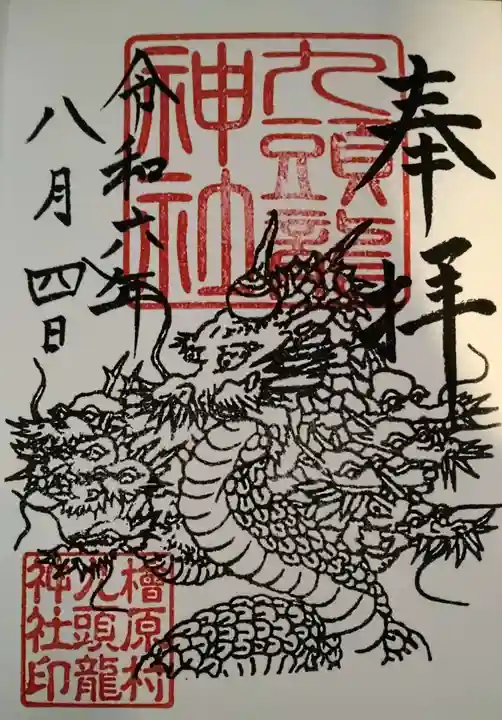 奉拝
九頭龍
神社
令和六年
八月四日
檜原村
九頭龍
神社印